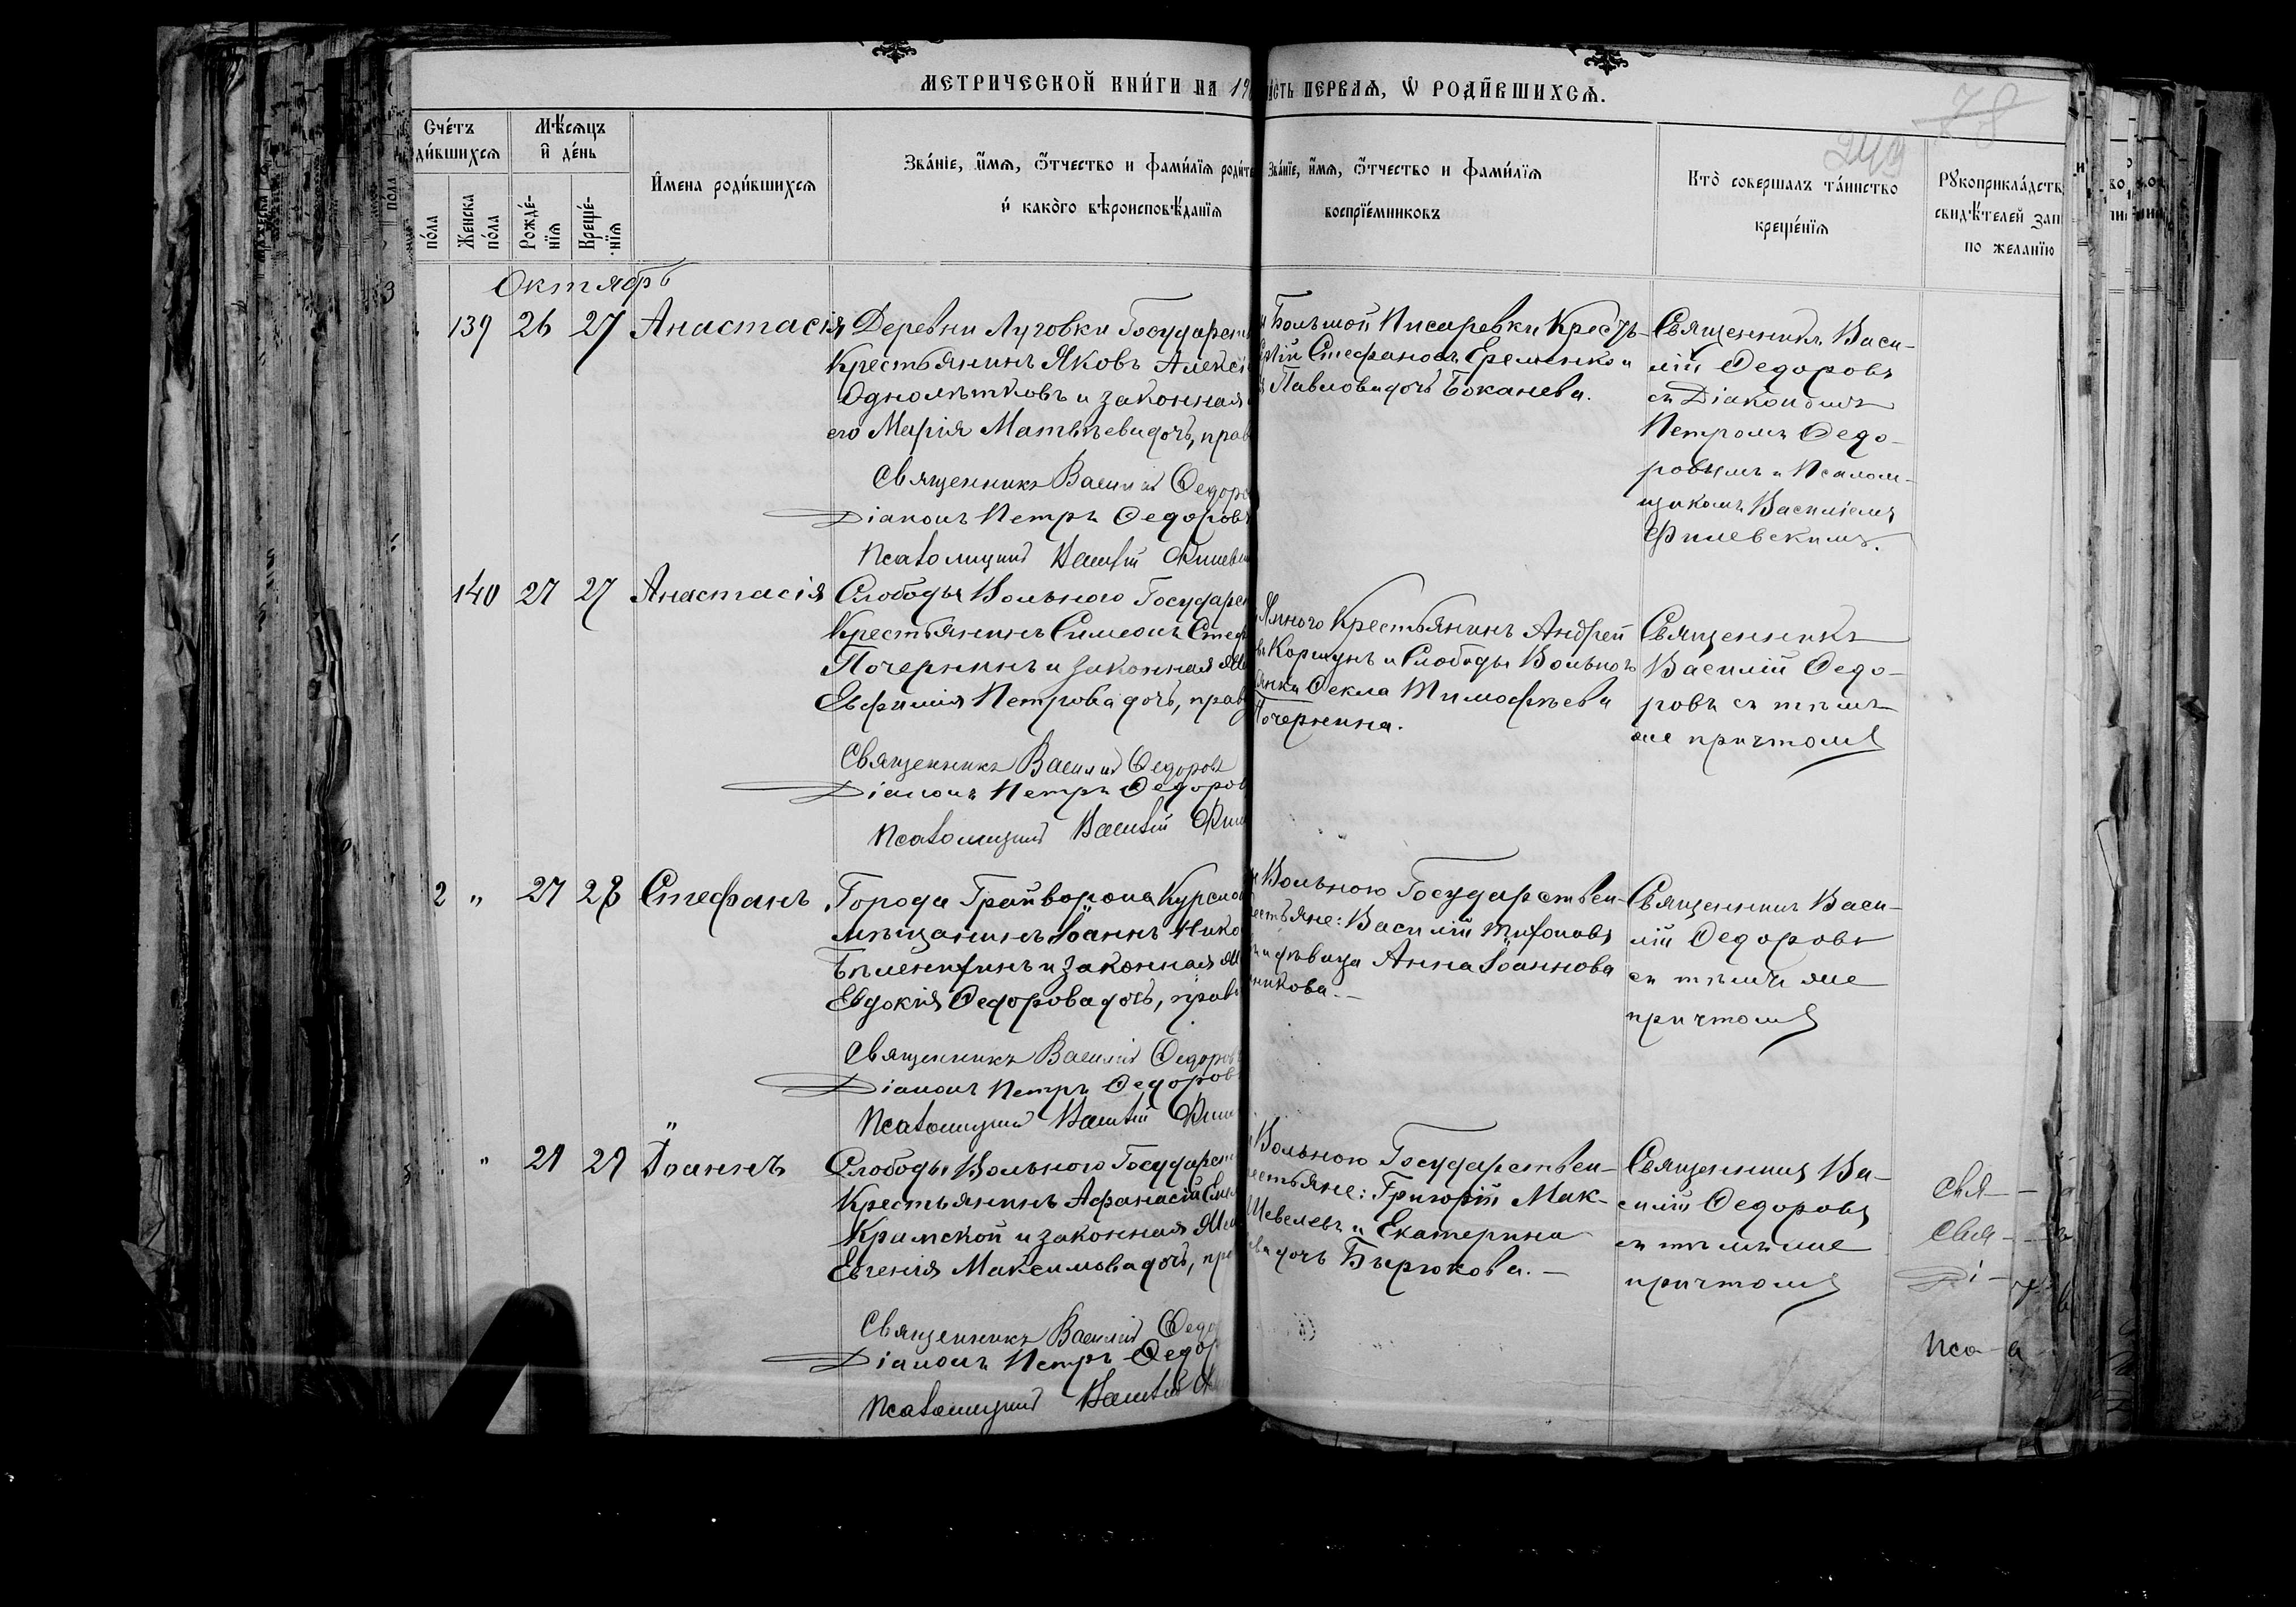 МЕТРИЧЕСКОЙ КНИ́ГИ НА 19
ПЕРВАѦ, Ѡ РОДИ́ВШИХСѦ.
Сче́тъ
ди́вшихсѧ
Мѣ́сѧцъ
и҆ де́нь
И҆мена роди́вшихсѧ
Зва́нїе, и҆́мѧ, ѻ҆́тчество и фами́лїѧ роди́те
и҆ како́го вѣроисповѣ́данїѧ
по́ла
Женска
по́ла
Рожде́-
нїѧ
Креще́-
нїѧ
Зва́нїе, и҆́мѧ, ѻ҆́тчество и фами́лїѧ
воспрїе́мниковъ
Кто̀ соверша́лъ та́инство
креще́нїѧ
Рꙋкоприкла́дств
свидѣ́телей зап
по жела́нїю
78
249
Октябрь
139 26 27 Анастасія Деревни Луговки Государств
Крестьянинъ Яковъ Алексі
Однолѣтковъ и законная
его Марія Матвѣева дочь, прав
Священникъ Василій Ѳедоро
Діаконъ Петръ Ѳедоровъ
Псаломщикъ Василій
Большой Писаревки Крестъ-
Стефановъ Еременко и
Павлова дочь Боканева.
Священникъ Васи-
лій Ѳедоровъ
съ Діакономъ
Петромъ Ѳедо-
ровымъ и Псалом-
щикомъ Василіемъ
Филевскимъ.
140 27 27 Анастасія Слободы Вольнаго Государст
Крестьянинъ Симеонъ Стеф
Почернинъ и законная же
Евфимія Петрова дочь, прав
Священникъ Василій Ѳедоровъ
Діаконъ Петръ Ѳедоров
Псаломщикъ Василій
Ямного Крестьянинъ Андрей
Коршунъ и Слободы Вольного
янка Ѳекла Тимофѣева
Почернина.
Священникъ
Василій Ѳедо-
ровъ съ тѣмъ
же причтомъ
2 „ 27 28 Стефанъ Города Грайворона Курской
мѣщанинъ Іоаннъ Нико
Бѣленихинъ и законная же
Евдокія Ѳедорова дочь, прав
Священникъ Василій Ѳедоровъ
Діаконъ Петръ Ѳедоров
Псаломщикъ Василій
Вольного Государствен-
естьяне: Василій Тифоновъ
и дѣвица Анна Іоаннова
никова.—
Священникъ Васи-
лій Ѳедоровъ
съ тѣмъ же
причтомъ
„ 29 29 Іоаннъ Слободы Вольного Государст
Крестьянинъ Афанасій
Крамской и законная Же
Евгенія Максимова дочь, пра
Священникъ Василій Ѳедо
Діаконъ Петръ Ѳедор
Псаломщикъ Василій
Вольного Государствен-
естьяне: Григорій Мак-
Шевелевъ и Екатерина
ва дочь Бырюкова.—
Священникъ Ва-
силій Ѳедоровъ
съ тѣмъ же
причтомъ
Свя-
Свя-
Ді-
Пса-